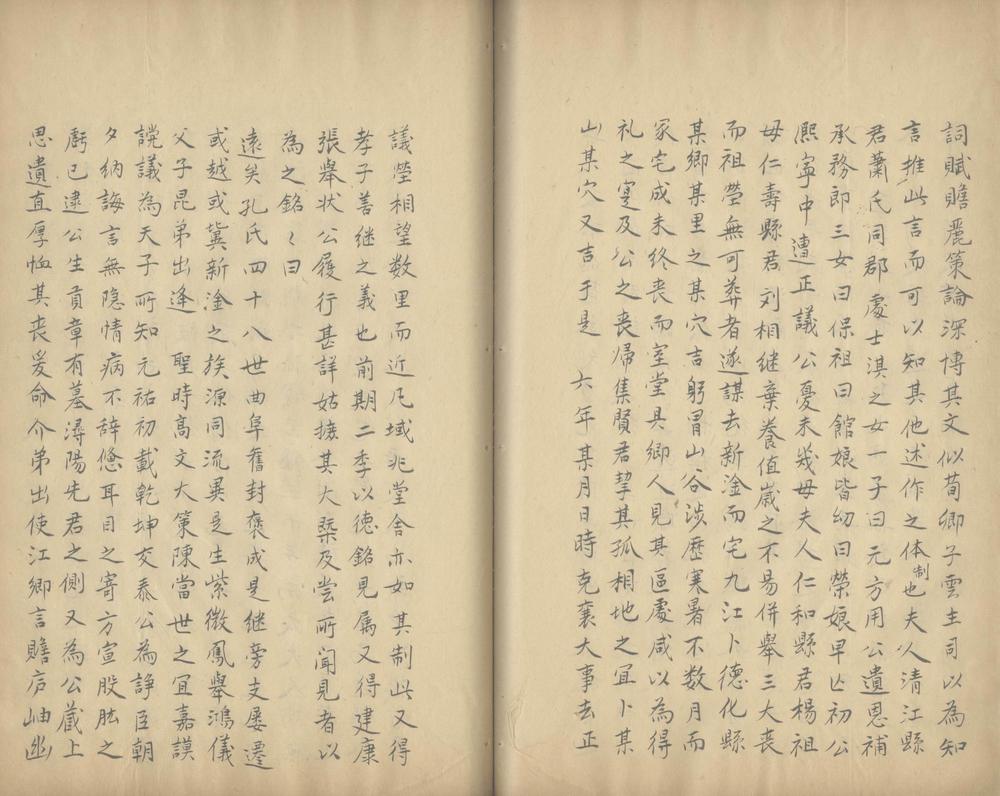 詞賦贍麗策論深博其文似荀卿子雲主司以為知
言推此言而可以知其他述作之体制也夫人清江縣
君蕭氏同郡處士淇之女一子曰元方用公遺恩補
承務郎三女曰保祖曰館娘皆幼曰榮娘早亡初公
熙寧中遭正議公憂未幾母夫人仁和縣君楊祖
母仁壽縣君刘相継棄養值嵗之不易併舉三大丧
而祖塋無可葬者遂謀去新淦而宅九江卜德化縣
某鄉某里之某穴吉躬冒山谷涉歷寒暑不数月而
冢宅成未终丧而室堂具鄉人見其區處咸以為得
礼之寔及公之丧帰集賢君挈其孤相地之宜卜某
山某穴又吉于是 六年某月日時克襄大事去正
議塋相望数里而近凡域兆堂舍亦如其制此又得
孝子善继之義也前期二季以德銘見属又得建康
張舉状公履行甚詳姑摭其大槩及尝所聞見者以
為之銘〻曰
遠矣孔氏四十八世曲阜舊封褒成是继旁支屡遷
或越或冀新淦之族源同流異是生紫微鳳舉鴻儀
父子昆弟出逢 聖時高文大策陳當世之宜嘉謨
讜議為天子所知元祐初載乾坤交泰公為諍臣朝
夕納誨言無隐情病不辞倦耳目之寄方宣股肱之
虧已逮公生貢章有墓潯陽先君之側又為公蔵上
思遺直厚恤其丧爰命介弟出使江鄉言贍庐岫幽